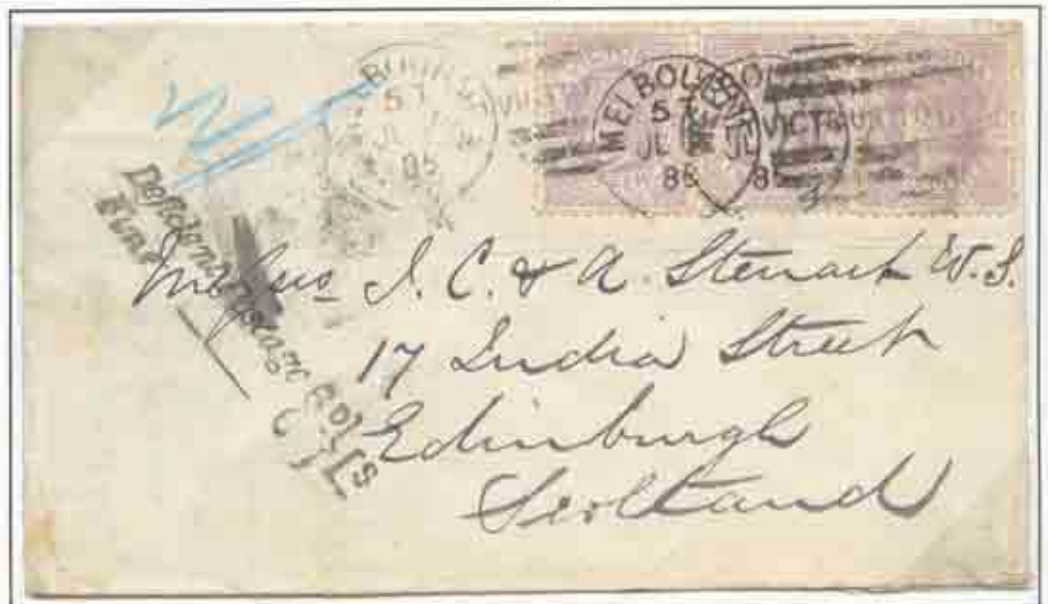 MELBOURNE
5 T
JL
86
VICT
Deficient Postage
Fine
Messrs J. C. & A. Stewart W.S.
17 India Street
Edinburgh
Scotland